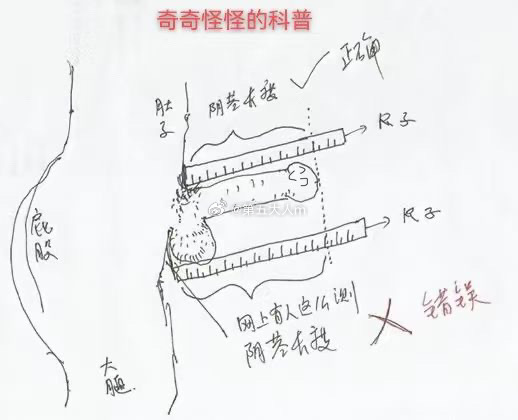 奇奇怪怪的科普
肚子
阴茎长度
正确
尺子
@第五大人m
屁股
尺子
网上有人这么测
阴茎长度
错误
大腿